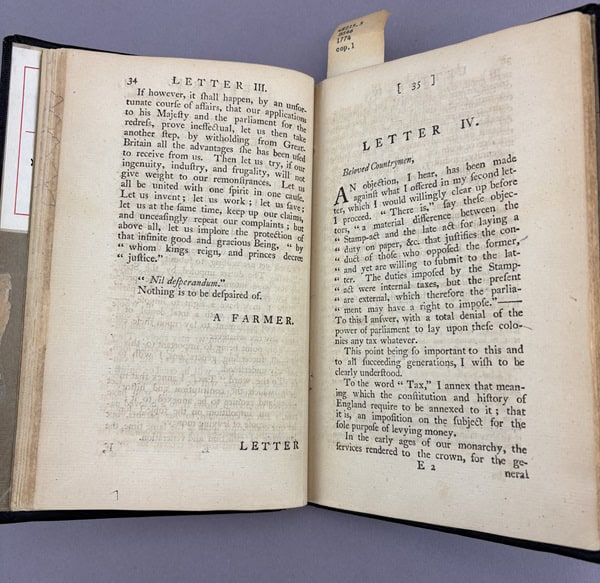 1774
cop.1
34 LETTER III.
If however, it ſhall happen, by an unfor-
tunate courſe of affairs, that our applications
to his Majeſty and the parliament for the
redreſs, prove ineffectual, let us then take
another ſtep, by witholding from Great-
Britain all the advantages ſhe has been uſed
to receive from us. Then let us try, if our
ingenuity, induſtry, and frugality, will not
give weight to our remonſtrances. Let us
all be united with one ſpirit in one cauſe.
Let us invent; let us work; let us ſave;
let us at the ſame time, keep up our claims,
and unceaſingly repeat our complaints; but
above all, let us implore the protection of
that infinite good and gracious Being, “ by
“ whom kings reign, and princes decree
“ juſtice.”
“ Nil deſperandum.”
Nothing is to be deſpaired of.
A FARMER.
LETTER
[ 35 ]
LETTER IV.
Beloved Countrymen,
AN objection, I hear, has been made
againſt what I offered in my ſecond let-
ter, which I would willingly clear up before
I proceed. “ There is,” ſay theſe objec-
tors, “ a material difference between the
“ Stamp-act and the late act for laying a
“ duty on paper, &c. that juſtifies the con-
“ duct of thoſe who oppoſed the former,
“ and yet are willing to ſubmit to the lat-
“ ter. The duties impoſed by the Stamp-
“ act were internal taxes, but the preſent
“ are external, which therefore the parlia-
“ ment may have a right to impoſe.”——
To this I anſwer, with a total denial of the
power of parliament to lay upon theſe colo-
nies any tax whatever.
This point being ſo important to this and
to all ſucceeding generations, I wiſh to be
clearly underſtood.
To the word “ Tax,” I annex that mean-
ing which the conſtitution and hiſtory of
England require to be annexed to it; that
it is, an impoſition on the ſubject for the
ſole purpoſe of levying money.
In the early ages of our monarchy, the
ſervices rendered to the crown, for the ge-
E 2 neral